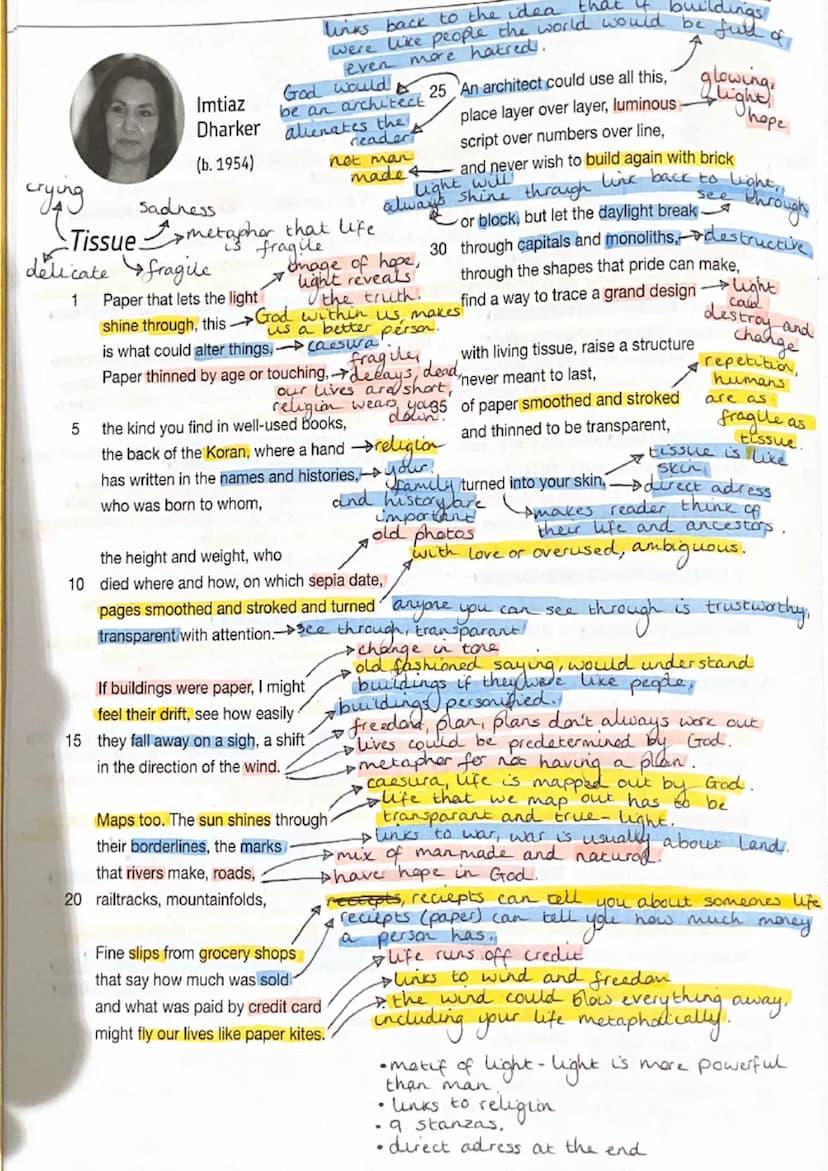 links back to the idea that if buildings
were like people the world would be full of
even more hatred.
God would
be an architect
alienates the
reader
not man
made
Imtiaz
Dharker
(b. 1954)
crying
sadness
metaphor that life
is fragile
Tissue
delicate
fragile
image of hope,
light reveals
the truth.
1 Paper that lets the light
shine through, this
God within us, makes
us a better person.
is what could alter things.
caesura
Paper thinned by age or touching,
fragile,
decays, dead,
our lives are short,
religion wears you
down.
5 the kind you find in well-used books,
the back of the Koran, where a hand
religion
has written in the names and histories,
your
family
and history are
important
who was born to whom,
old photos
the height and weight, who
with love or overused, ambiguous.
10 died where and how, on which sepia date,
pages smoothed and stroked and turned
anyone you can see through is trustworthy,
transparent with attention.
see through, transparant
change in tone
If buildings were paper, I might
old fashioned saying, would understand
buildings if they were like people,
feel their drift, see how easily
buildings personified.
15 they fall away on a sigh, a shift
freedom, plan, plans don't always work out
lives could be predetermined by God.
in the direction of the wind.
metaphor for not having a plan.
caesura, life is mapped out by God.
Maps too. The sun shines through
life that we map out has to be
transparant and true - light.
their borderlines, the marks
links to war, war is usually about land.
that rivers make, roads,
mix of manmade and natural.
have hope in God.
20 railtracks, mountainfolds,
receipts, reciepts can tell you about someones life
reciepts (paper) can tell you how much money
a person has.
Fine slips from grocery shops
that say how much was sold
life runs off credit
and what was paid by credit card
links to wind and freedom
might fly our lives like paper kites.
the wind could blow everything away,
including your life metaphorically.
25 An architect could use all this,
place layer over layer, luminous
glowing,
light,
hope
script over numbers over line,
and never wish to build again with brick
light will
always shine through link back to light,
see through
or block, but let the daylight break
30 through capitals and monoliths,
destructive
through the shapes that pride can make,
find a way to trace a grand design
light
can
destroy and
change
with living tissue, raise a structure
never meant to last,
35 of paper smoothed and stroked
and thinned to be transparent,
repetition,
humans
are as
fragile as
tissue.
turned into your skin.
tissue is like
skin,
direct adress
makes reader think of
their life and ancestors.
•motif of light - light is more powerful
than man
• links to religion
• 9 stanzas.
• direct adress at the end